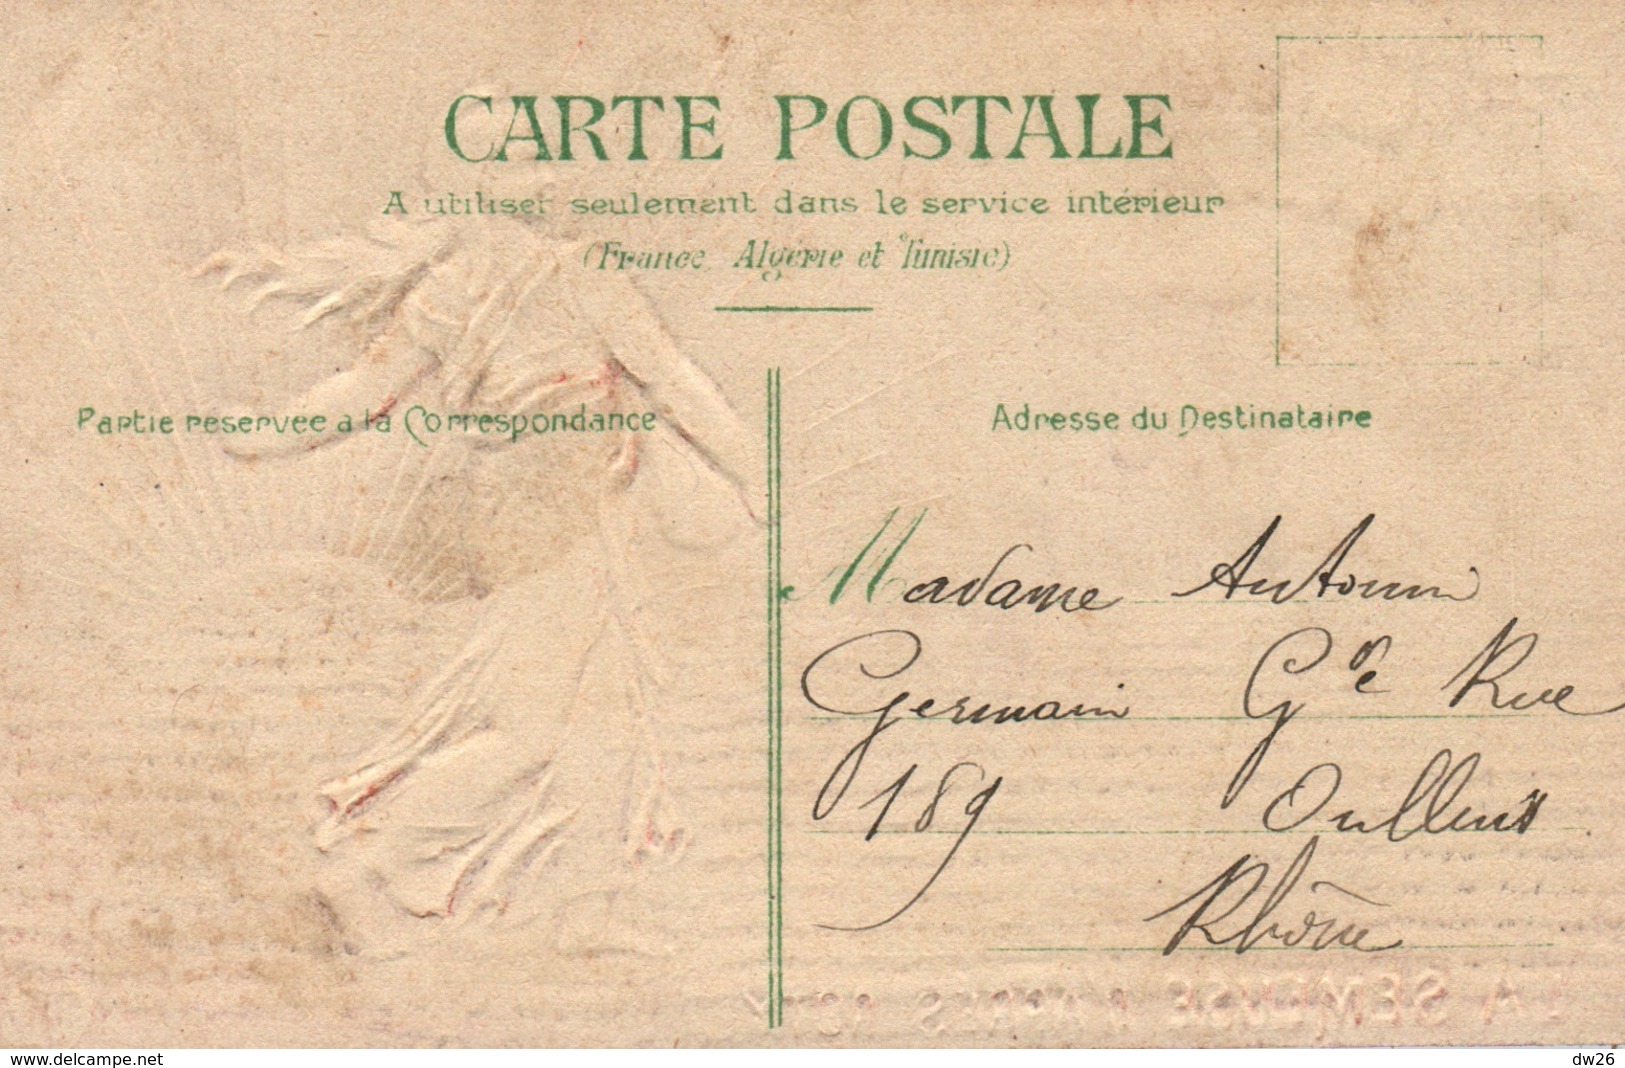 CARTE POSTALE
A utiliser seulement dans le service intérieur
(France, Algérie et Tunisie)
Partie réservée à la Correspondance
Adresse du Destinataire
Madame Antonin
Germain Gde Rue
189 Oullins
Rhône
LA SEMEUSE
www.delcampe.net
dw26